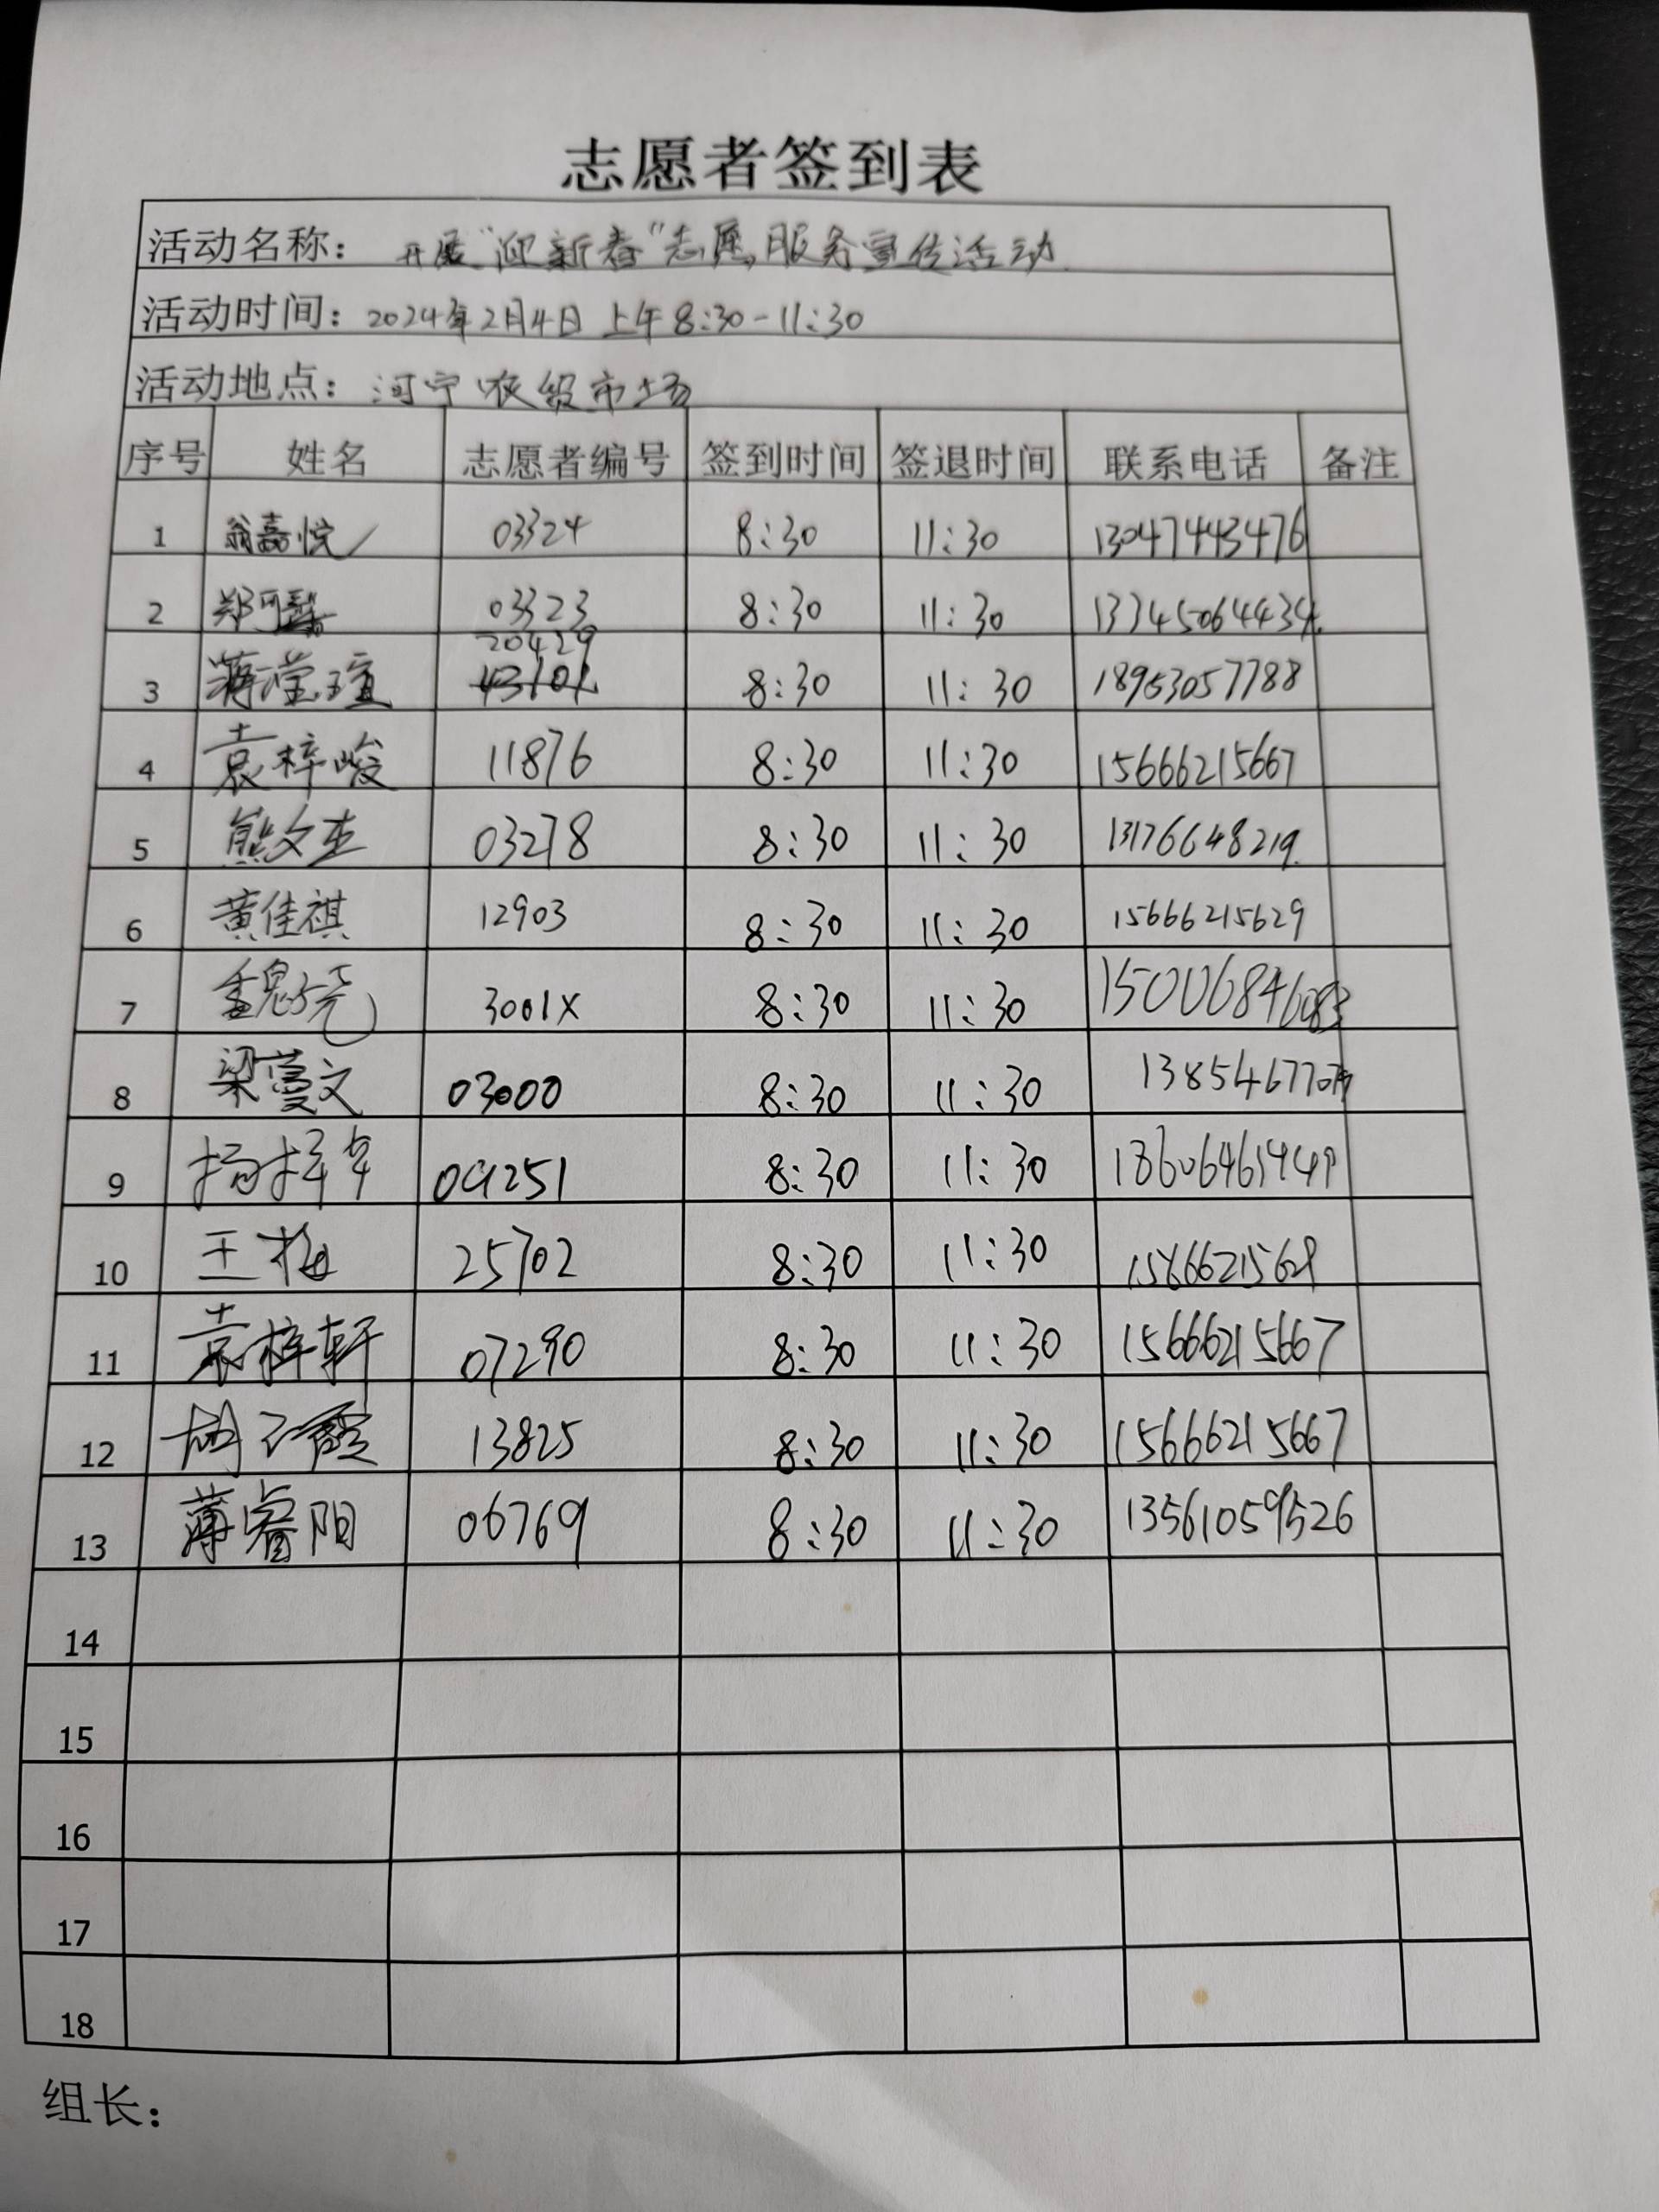 志愿者签到表
活动名称: 开展"迎新春"志愿服务宣传活动
活动时间: 2024年2月4日 上午8:30-11:30
活动地点: 河宁农贸市场
序号 姓名 志愿者编号 签到时间 签退时间 联系电话 备注
1 翁嘉悦 03324 8:30 11:30 13047443476
2 郑可馨 03323 8:30 11:30 13345064434
20429
3 蒋滢瑄 43101 8:30 11:30 18953057788
4 袁梓峻 11876 8:30 11:30 15666215667
5 熊文杰 03278 8:30 11:30 13176648219
6 黄佳祺 12903 8:30 11:30 15666215629
7 3001X 8:30 11:30 15006846083
8 梁蔓文 03000 8:30 11:30
9 09251 8:30 11:30
10 王梅 25702 8:30 11:30
11 袁梓轩 07290 8:30 11:30 15666215667
12 13825 8:30 11:30 15666215667
13 薄睿阳 06769 8:30 11:30 13561059526
14
15
16
17
18
组长: